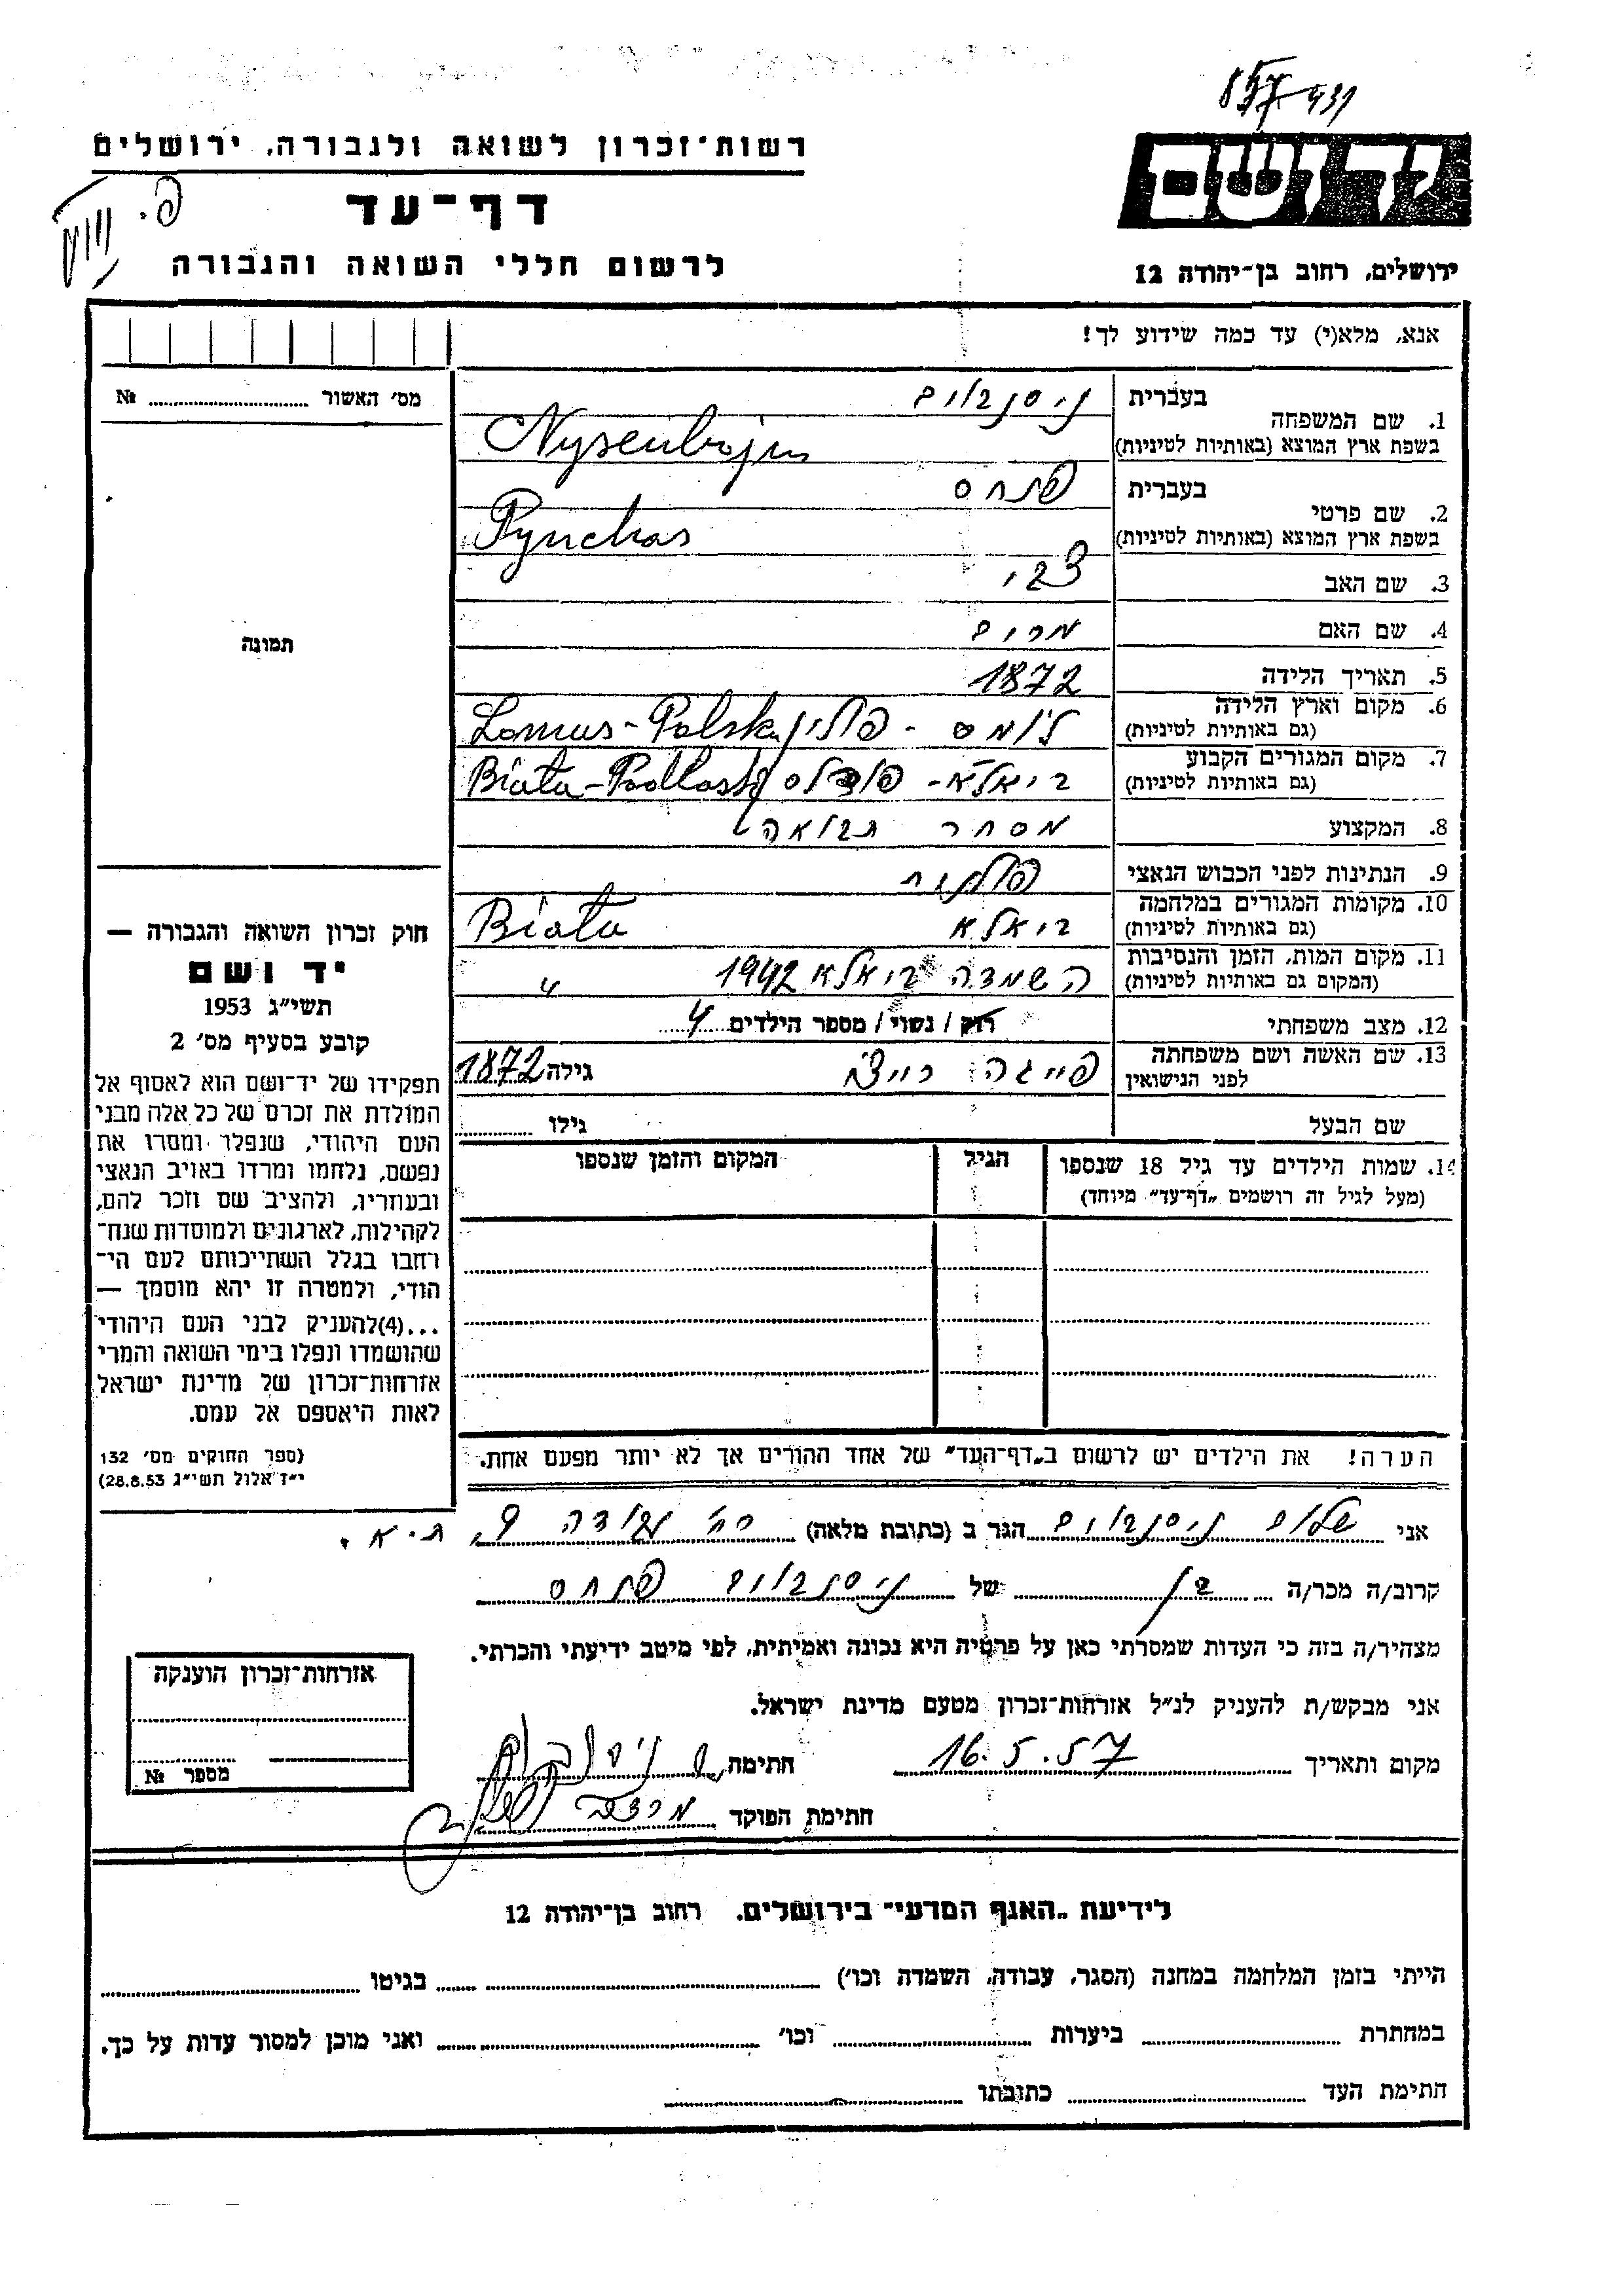 רשות־זכרון לשואה ולגבורה, ירושלים
דף־עד
לרשום חללי השואה והגבורה
יד ושם
ירושלים, רחוב בן־יהודה 12
אנא, מלא(י) עד כמה שידוע לך!
מס׳ האשור № 
תמונה
1. שם המשפחה בעברית ניסנבוים
בשפת ארץ המוצא (באותיות לטיניות) Nysenbojm
2. שם פרטי בעברית פנחס
בשפת ארץ המוצא (באותיות לטיניות) Pynchas
3. שם האב צבי
4. שם האם מרים
5. תאריך הלידה 1872
6. מקום וארץ הלידה (גם באותיות לטיניות) לומס - פולין Lomus-Polska
7. מקום המגורים הקבוע (גם באותיות לטיניות) ביאלא - פודלס Biała-Podlaska
8. המקצוע מסחר תבואה
9. הנתינות לפני הכבוש הנאצי פולנית
10. מקומות המגורים במלחמה (גם באותיות לטיניות) ביאלא Biała
11. מקום המות, הזמן והנסיבות (המקום גם באותיות לטיניות) השמדה ביאלא 1942 "
12. מצב משפחתי רוק / נשוי / מספר הילדים 4
13. שם האשה ושם משפחתה לפני הנישואין פייגה גילה 1872
שם הבעל גילו
14. שמות הילדים עד גיל 18 שנספו הגיל המקום והזמן שנספו
(מעל לגיל זה רושמים „דף־עד״ מיוחד)
הערה! את הילדים יש לרשום ב„דף־העד״ של אחד ההורים אך לא יותר מפעם אחת.
חוק זכרון השואה והגבורה —
יד ושם
תשי״ג 1953
קובע בסעיף מס׳ 2
תפקידו של יד־ושם הוא לאסוף אל
המולדת את זכרם של כל אלה מבני
העם היהודי, שנפלו ומסרו את
נפשם, נלחמו ומרדו באויב הנאצי
ובעוזריו, ולהציב שם וזכר להם,
לקהילות, לארגונים ולמוסדות שנח־
רבו בגלל השתייכותם לעם הי־
הודי, ולמטרה זו יהא מוסמך —
...(4)להעניק לבני העם היהודי
שהושמדו ונפלו בימי השואה והמרי
אזרחות־זכרון של מדינת ישראל
לאות היאספם אל עמם.
(ספר החוקים מס׳ 132
י״ד אלול תשי״ג 28.8.53)
אני שלום ניסנבוים הגר ב (כתובת מלאה) רח׳ 9, ת.א.
קרוב/ה מכר/ה בן של ניסנבוים פנחס
מצהיר/ה בזה כי העדות שמסרתי כאן על פרטיה היא נכונה ואמיתית, לפי מיטב ידיעתי והכרתי.
אני מבקש/ת להעניק לנ״ל אזרחות־זכרון מטעם מדינת ישראל.
מקום ותאריך 16.5.57 חתימה ש ניסנבוים
חתימת הפוקד
אזרחות־זכרון הוענקה
מספר №
לידיעת „האגף המדעי״ בירושלים, רחוב בן־יהודה 12
הייתי בזמן המלחמה במחנה (הסגר, עבודה, השמדה וכו׳) בגיטו
במחתרת ביערות וכו׳ ואני מוכן למסור עדות על כך.
חתימת העד כתובתו